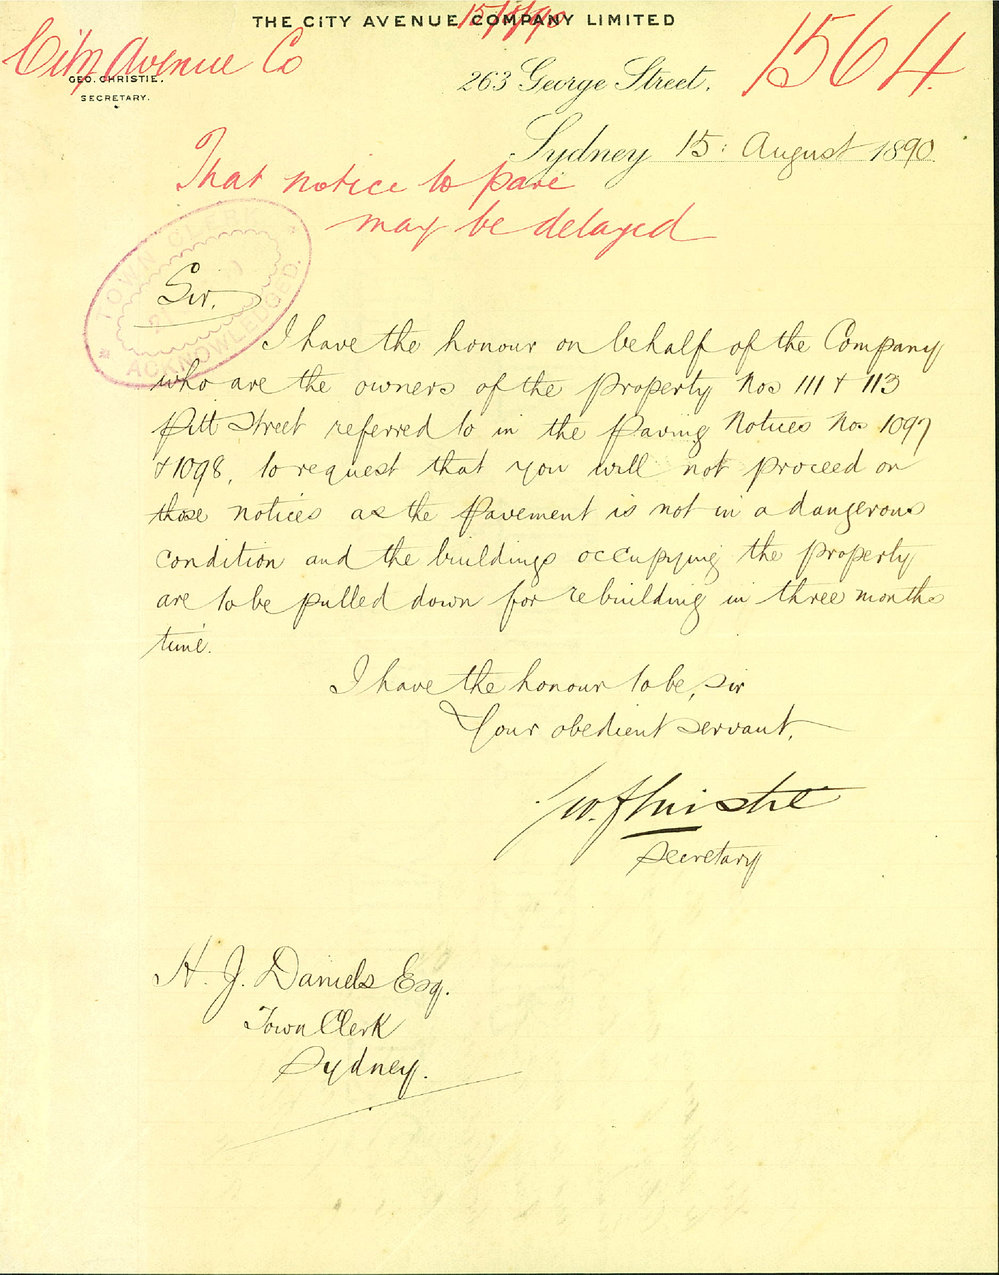 THE CITY AVENUE COMPANY LIMITED
15/8/90
City Avenue Co
1564.
GEO. CHRISTIE.
SECRETARY.
263 George Street.
Sydney 15: August 1890.
That notice to pave
may be delayed
TOWN CLERK
ACKNOWLEDGED.
Sir,
I have the honour on behalf of the Company
who are the owners of the property Nos 111 & 113
Pitt Street referred to in the Paving Notices Nos 1097
& 1098, to request that you will not proceed on
those notices as the pavement is not in a dangerous
condition and the buildings occupying the property
are to be pulled down for rebuilding in three months
time.
I have the honour to be, Sir
Your obedient servant,
Geo. Christie
Secretary
H. J. Daniels Esq.
Town Clerk
Sydney.